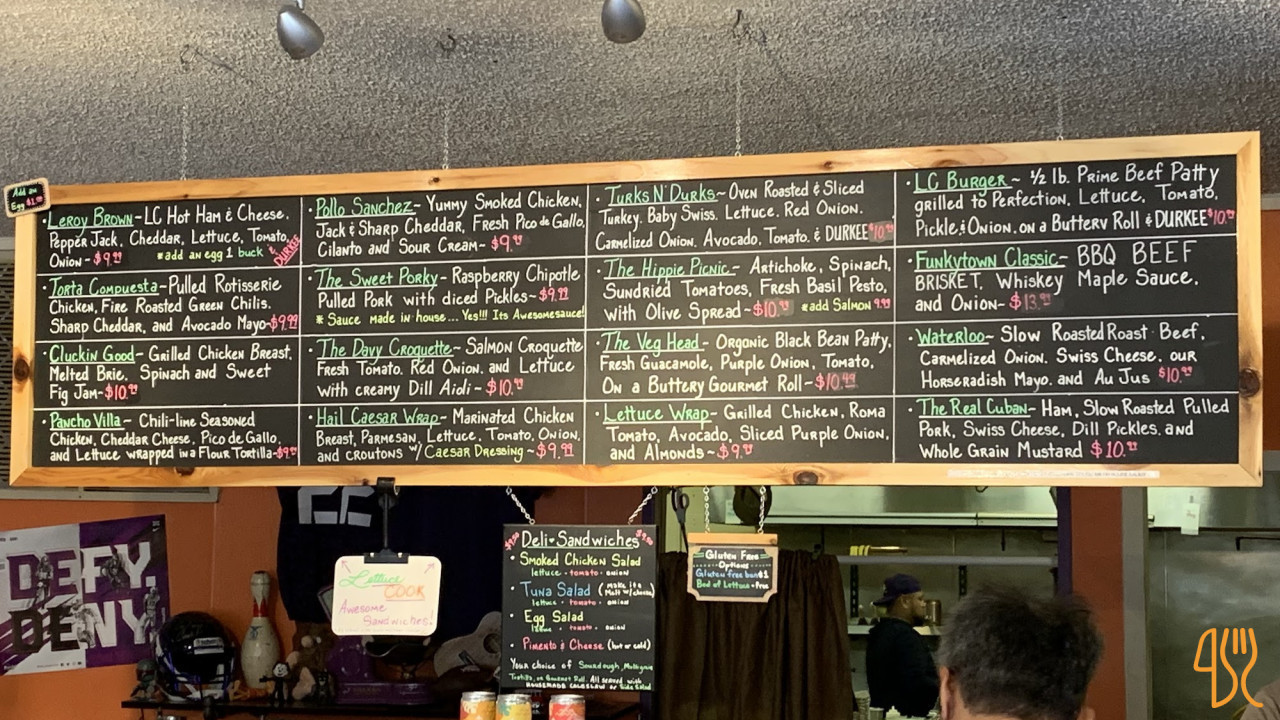 Add an
Egg $1.00
• Leroy Brown ~ LC Hot Ham & Cheese,
Pepper Jack, Cheddar, Lettuce, Tomato,
Onion ~ $9.99 *add an egg 1 buck & DURKEE
• Torta Compuesta ~ Pulled Rotisserie
Chicken, Fire Roasted Green Chilis.
Sharp Cheddar, and Avocado Mayo ~ $9.99
• Cluckin Good ~ Grilled Chicken Breast,
Melted Brie, Spinach and Sweet
Fig Jam ~ $10.99
• Pancho Villa ~ Chili-lime Seasoned
Chicken, Cheddar Cheese, Pico de Gallo,
and Lettuce wrapped in a Flour Tortilla ~ $9.99
• Pollo Sanchez ~ Yummy Smoked Chicken,
Jack & Sharp Cheddar, Fresh Pico de Gallo,
Cilanto and Sour Cream ~ $9.99
• The Sweet Porky ~ Raspberry Chipotle
Pulled Pork with diced Pickles ~ $9.99
* Sauce made in house... Yes!!! Its Awesomesauce!
• The Davy Croquette ~ Salmon Croquette
Fresh Tomato, Red Onion, and Lettuce
with creamy Dill Aioli ~ $10.99
• Hail Caesar Wrap ~ Marinated Chicken
Breast, Parmesan, Lettuce, Tomato, Onion,
and croutons w/ Caesar Dressing ~ $9.99
• Turks N' Durks ~ Oven Roasted & Sliced
Turkey, Baby Swiss, Lettuce, Red Onion,
Carmelized Onion, Avocado, Tomato, & DURKEE $10.99
• The Hippie Picnic ~ Artichoke, Spinach,
Sundried Tomatoes, Fresh Basil Pesto,
with Olive Spread ~ $10.99 *add Salmon 9.99
• The Veg Head ~ Organic Black Bean Patty,
Fresh Guacamole, Purple Onion, Tomato,
On a Buttery Gourmet Roll ~ $10.99
• Lettuce Wrap ~ Grilled Chicken, Roma
Tomato, Avocado, Sliced Purple Onion,
and Almonds ~ $9.99
• LC Burger ~ 1/2 lb. Prime Beef Patty
grilled to Perfection, Lettuce, Tomato,
Pickle, & Onion, on a Buttery Roll & DURKEE $10.99
• Funkytown Classic ~ BBQ BEEF
BRISKET, Whiskey Maple Sauce,
and Onion ~ $13.99
• Waterloo ~ Slow Roasted Roast Beef,
Carmelized Onion, Swiss Cheese, our
Horseradish Mayo, and Au Jus $10.99
• The Real Cuban ~ Ham, Slow Roasted Pulled
Pork, Swiss Cheese, Dill Pickles, and
Whole Grain Mustard $10.99
DEFY.
DENY
Lettuce
COOK
Awesome
Sandwiches!
Deli • Sandwiches
• Smoked Chicken Salad
lettuce • tomato • onion
• Tuna Salad (make it a Melt w/cheese)
lettuce • tomato • onion
• Egg Salad
lettuce • tomato • onion
• Pimento & Cheese (hot or cold)
Your choice of Sourdough, Multigrain
Tortilla, or Gourmet Roll. All served with
HOMEMADE COLESLAW or Side Salad
Gluten Free
Options
Gluten free bun $1
Bed of Lettuce - Free